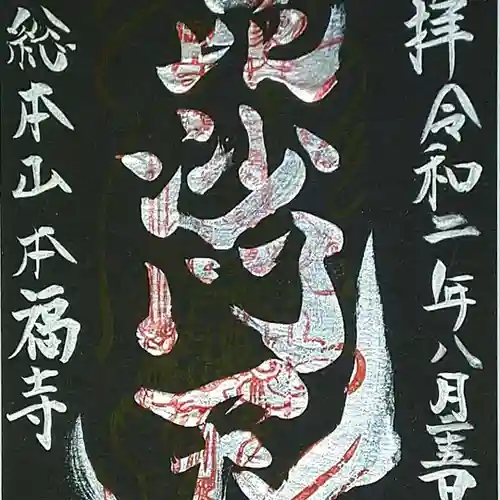 拝 令和二年八月 日
毘沙門天
総本山 本福寺